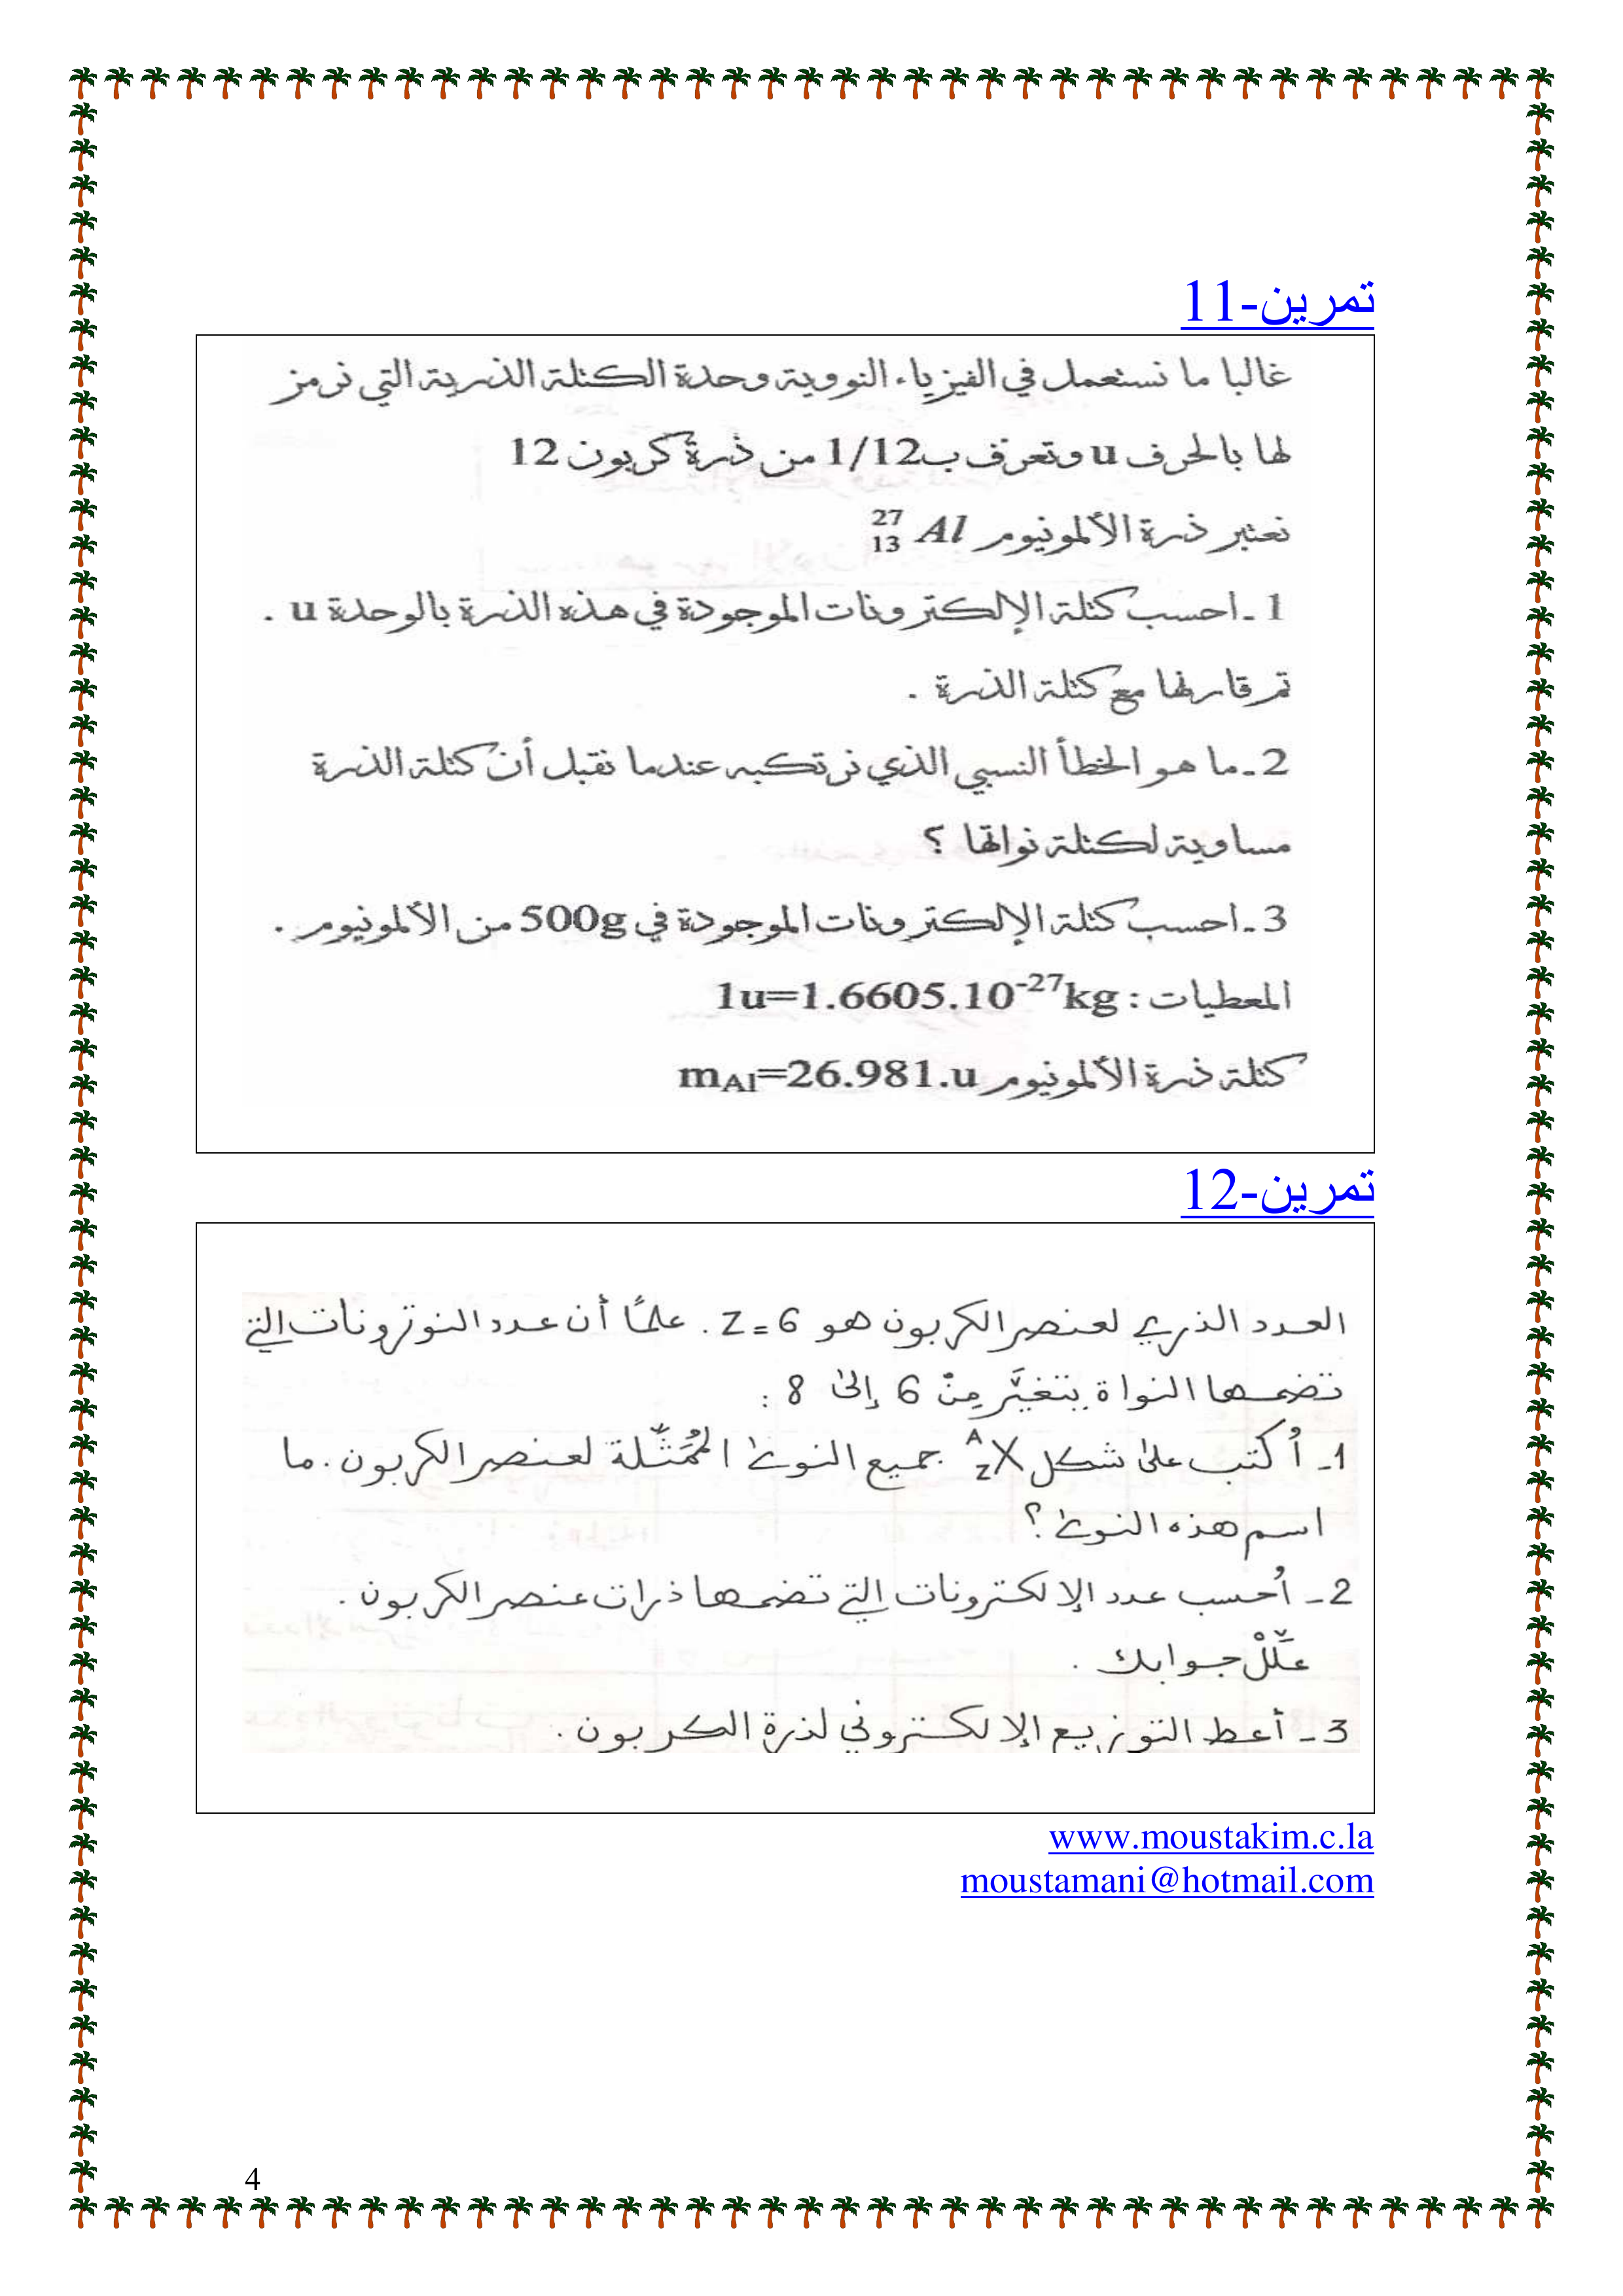 تمرين-11
غالبا ما نستعمل في الفيزياء النووية وحدة الكتلة الذرية التي نرمز
لها بالحرف u وتعرف ب1/12 من ذرة كربون 12
نعتبر ذرة الألمونيوم ²⁷₁₃Al
1 ـ احسب كتلة الإلكترونات الموجودة في هذه الذرة بالوحدة u .
تم قارنها مع كتلة الذرة .
2 ـ ما هو الخطأ النسبي الذي نرتكبه عندما نقبل أن كتلة الذرة
مساوية لكتلة نواتها ؟
3 ـ احسب كتلة الإلكترونات الموجودة في 500g من الألمونيوم .
المعطيات : 1u=1.6605.10⁻²⁷kg
كتلة ذرة الألمونيوم mAl=26.981.u
تمرين-12
العدد الذري لعنصر الكربون هو Z=6 . علمًا أن عدد النوترونات التي
تضمها النواة يتغيَّر مِنْ 6 إلى 8 :
1ـ أُكتب على شكل ᴬzX جميع النوى المُمَثِّلة لعنصر الكربون. ما
اسم هذه النوى ؟
2ـ أُحسب عدد الإلكترونات التي تضمها ذرات عنصر الكربون .
علِّلْ جوابك .
3ـ أعط التوزيع الإلكتروني لذرة الكربون .
www.moustakim.c.la
moustamani@hotmail.com
4